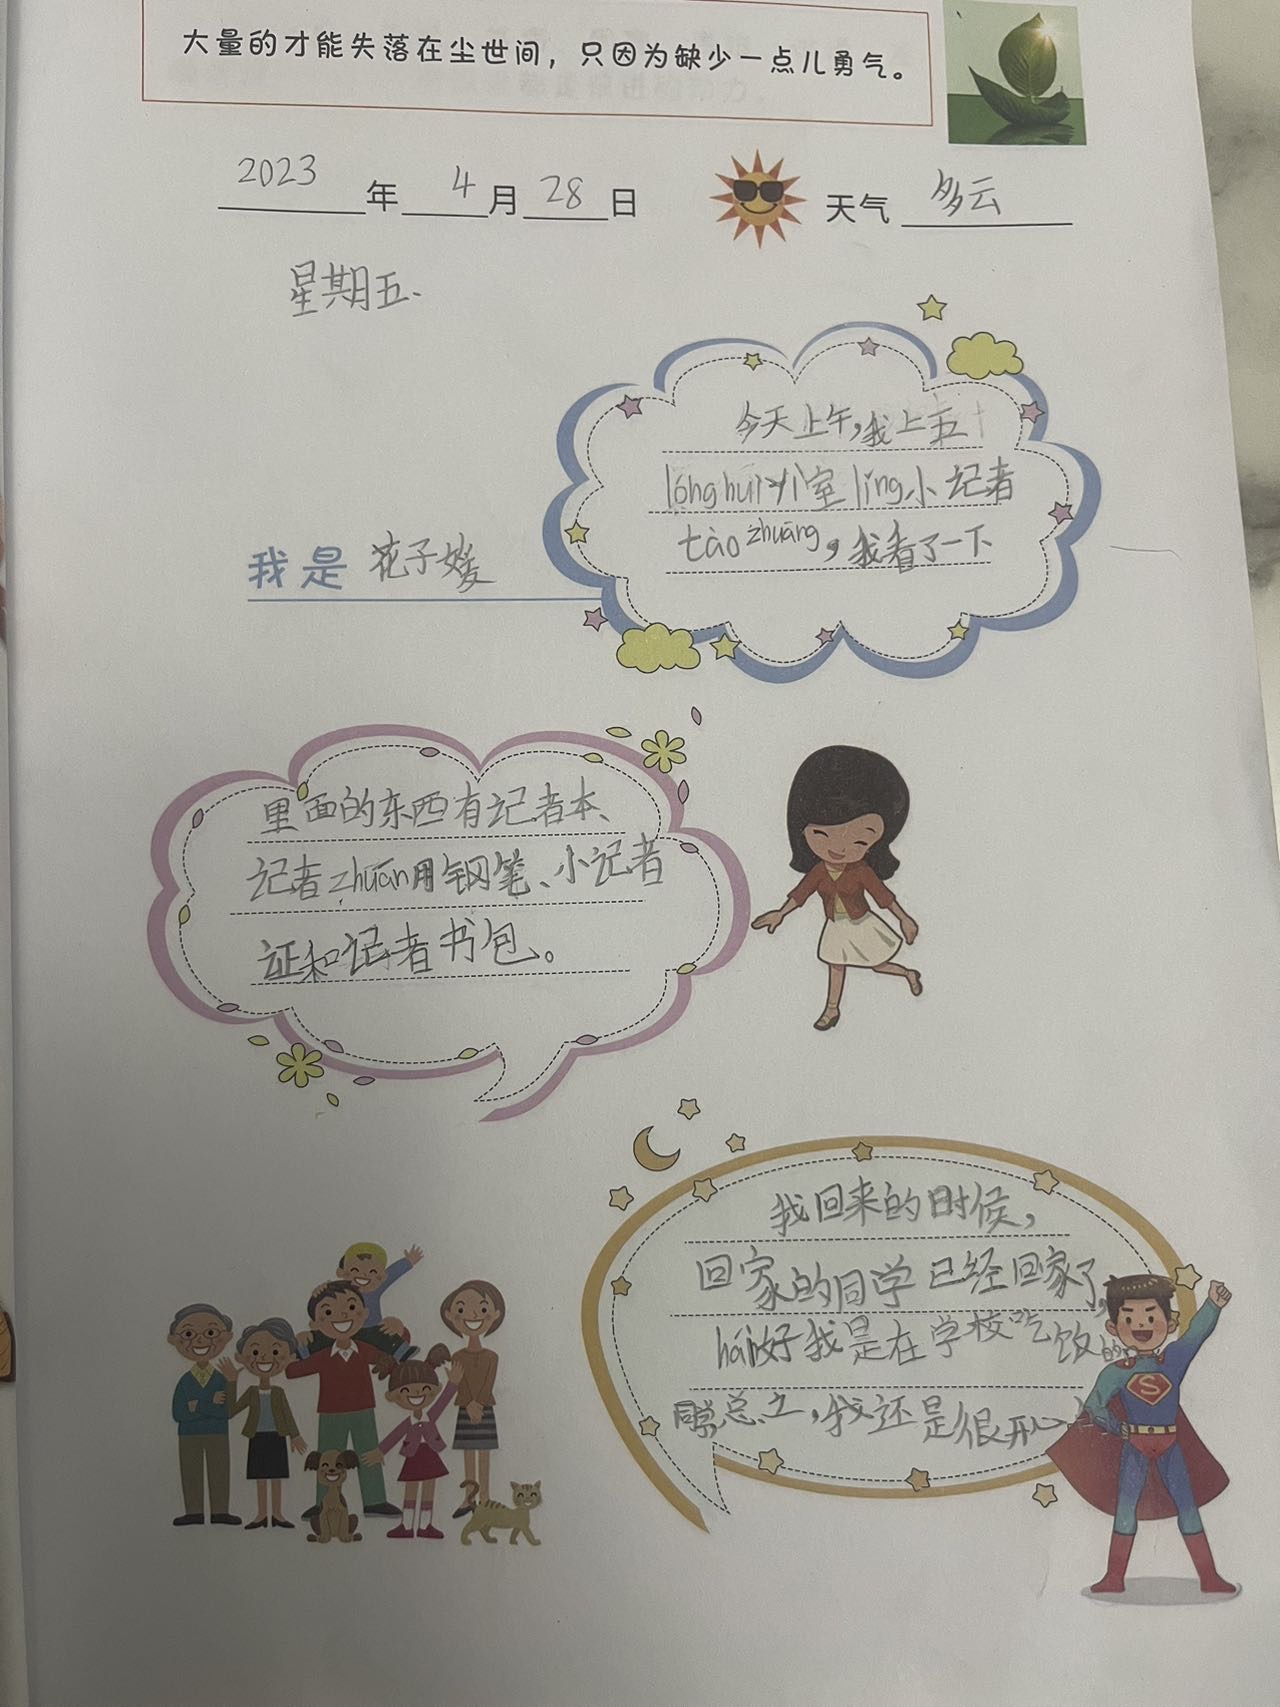 大量的才能失落在尘世间，只因为缺少一点儿勇气。
2023年4月28日 天气 多云
星期五
今天上午，我上五
lóng huì 室 lǐng 小记者
我是 花子媛
tào zhuāng，我看了一下
里面的东西有记者本、
记者 zhuān 用钢笔、小记者
证和记者书包。
我回来的时候，
回家的同学已经回家了，
hái 好我是在学校吃饭的
总之，我还是很开心
S